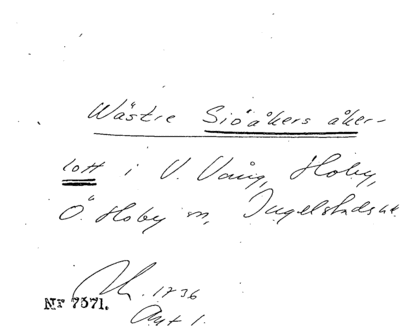 Wästre Siöåkers åker-
lott i V. Vång, Hoby,
Ö. Hoby sn, Ingelstads hd
1736
Nr 7571.
Akt 1.